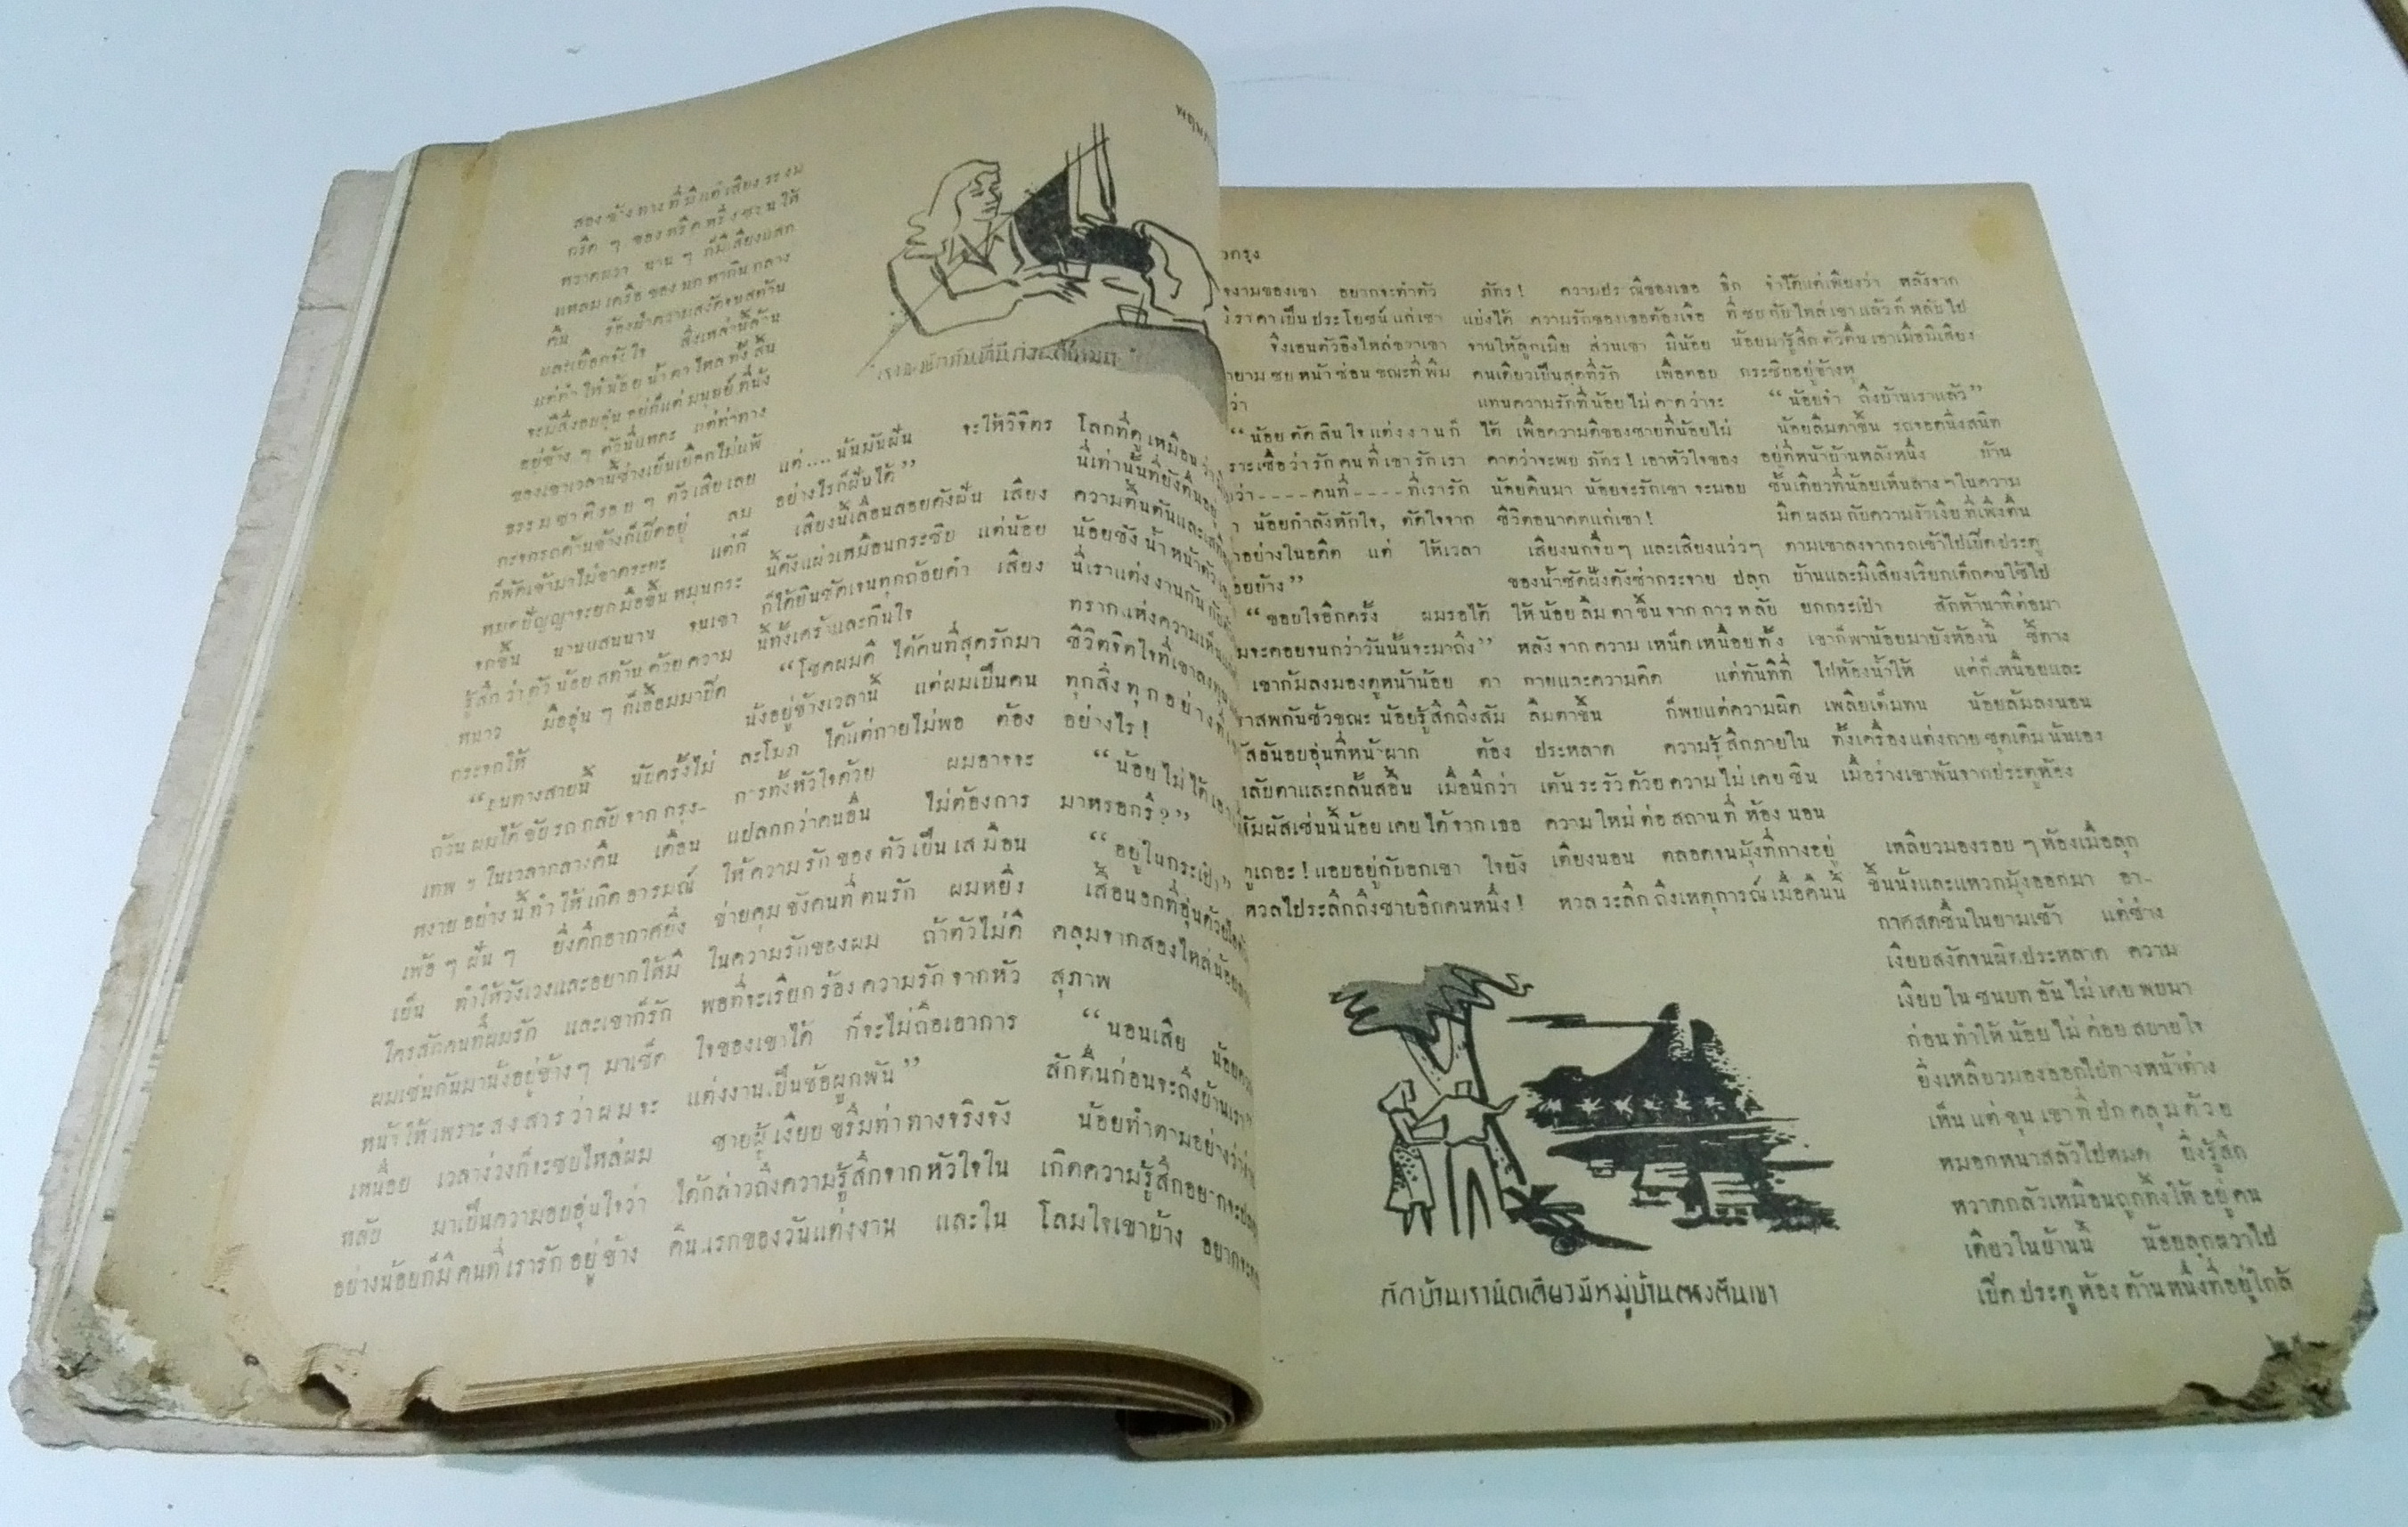 สองข้างทางที่มีแต่เสียงระงม
กรีด ๆ ของหรีดหริ่ง
นาน ๆ ก็มีเสียงแสก
แหลมเครือของนกหากินกลาง
คืน ร้องฝ่าความสงัดจนสท้าน
และเยือกจับใจ สิ่งเหล่านี้ล้วน
แต่ทำให้น้อยน้ำตาไหลทั้งสิ้น
จะมีสิ่งอบอุ่นอยู่ก็แต่มนุษย์ที่นั่ง
อยู่ข้าง ๆ ตัวนี่แหละ แต่ท่าทาง
ของเขาเวลานี้ช่างเย็นเยือกไม่แพ้
ธรรมชาติรอบ ๆ ตัวเสียเลย
กะจกรถด้านข้างก็เปิดอยู่ ลม
ก็พัดเข้ามาไม่ขาดระยะ แต่ก็
หมดปัญญาจะยกมือขึ้นหมุนกระ
จกขึ้น นานแสนนาน จนเขา
รู้สึกว่าตัวน้อยสท้านด้วยความ
หนาว มืออุ่น ๆ ก็เอื้อมมาปิด
กระจกให้
ถวันผมได้ขับรถกลับจากกรุง-
เทพ ฯ ในเวลากลางคืน เดือน
หงายอย่างนี้ทำให้เกิดอารมณ์
เพ้อ ๆ ฝัน ๆ ยิ่งดึกอากาศยิ่ง
เย็น ทำให้วังเวงและอยากให้มี
ใครสักคนที่ผมรัก และเขาก็รัก
ผมเช่นกันมานั่งอยู่ข้างๆ มาเช็ด
หน้าให้เพราะสงสารว่าผมจะ
เหนื่อย เวลาง่วงก็จะซบไหล่ผม
หลับ มาเป็นความอบอุ่นใจว่า
อย่างน้อยก็มีคนที่เรารักอยู่ข้าง
แต่....นั่นมันฝัน จะให้วิจิตร
อย่างไรก็ฝันได้”
เสียงนี้เลื่อนลอยดังฝัน เสียง
นี้ดังแผ่วเหมือนกระซิบ แต่น้อย
ก็ได้ยินชัดเจนทุกถ้อยคำ เสียง
นี้ทั้งเศร้าและกินใจ
“โชคผมดี ได้คนที่สุดรักมา
นั่งอยู่ข้างเวลานี้ แต่ผมเป็นคน
ละโมภ ได้แต่กายไม่พอ ต้อง
การทั้งหัวใจด้วย ผมอาจจะ
แปลกกว่าคนอื่น ไม่ต้องการ
ให้ความรักของตัวเป็นเสมือน
ข่ายคุมขังคนที่ตนรัก ผมหยิ่ง
ในความรักของผม ถ้าตัวไม่ดี
พอที่จะเรียกร้องความรักจากหัว
ใจของเขาได้ ก็จะไม่ถือเอาการ
แต่งงานเป็นข้อผูกพัน”
ชายผู้เงียบขรึมท่าทางจริงจัง
ได้กล่าวถึงความรู้สึกจากหัวใจใน
คืนแรกของวันแต่งงาน และใน
โลกที่ดูเหมือนว่า
นี่เท่านั้นที่ยังตื่นอยู่
ความตื้นตันและ
น้อยชัง น้ำหน้าตัว
นี่เราแต่งงานกัน
ตรากแห่งความเห็น
ชีวิตจิตใจที่เขา
ทุกสิ่งทุกอย่าง
อย่างไร!
“น้อยไม่ได้เอา
มาหรอกรึ?”
“อยู่ในกระเป๋า”
เสื้อนอกที่อุ่นด้วย
คลุมจากสองไหล่น้อย
สุภาพ
“นอนเสีย น้อย
สักตื่นก่อนจะถึงบ้านเรา”
น้อยทำตามอย่างว่า
เกิดความรู้สึกอยากจะ
โลมใจเขาบ้าง
งามของเขา อยากจะทำตัว
ราคาเป็นประโยชน์แก่เขา
จึงเอนตัวอิงไหล่ขวาเขา
ยามซบหน้าซ่อน ขณะที่พิม
ว่า
“น้อยตัดสินใจแต่งงานก็
ราะเชื่อว่ารักคนที่เขารักเรา
ว่า----คนที่----ที่เรารัก
น้อยกำลังหักใจ, ตัดใจจาก
อย่างในอดีต แต่ ให้เวลา
อยบ้าง”
“ขอบใจอีกครั้ง ผมรอได้
มจะคอยจนกว่าวันนั้นจะมาถึง”
เขาก้มลงมองดูหน้าน้อย ตา
ราสพกันชั่วขณะ น้อยรู้สึกถึงสัม
สอันอบอุ่นที่หน้าผาก ต้อง
หลับตาและกลั้นสอื้น เมื่อนึกว่า
สัมผัสเช่นนี้น้อยเคยได้จากเธอ
ดูเถอะ! แอบอยู่กับอกเขา ใจยัง
หวลไประลึกถึงชายอีกคนหนึ่ง!
ภัทร! ความปราณีของเธอ
แบ่งได้ ความรักของเธอต้องเจือ
จานให้ลูกเมีย ส่วนเขา มีน้อย
คนเดียวเป็นสุดที่รัก เพื่อตอบ
แทนความรักที่น้อยไม่คาดว่าจะ
ได้ เพื่อความดีของชายที่น้อยไม่
คาดว่าจะพบ ภัทร! เอาหัวใจของ
น้อยคืนมา น้อยจะรักเขา จะมอบ
ชีวิตอนาคตแก่เขา!
เสียงนกจิบๆ และเสียงแว่วๆ
ของน้ำซัดฝั่งดังซ่ากระจาย ปลุก
ให้น้อยลืมตาขึ้นจากการหลับ
หลังจากความเหน็ดเหนื่อยทั้ง
กายและความคิด แต่ทันทีที่
ลืมตาขึ้น ก็พบแต่ความผิด
ประหลาด ความรู้สึกภายใน
เต้นระรัวด้วยความไม่เคยชิน
ความใหม่ต่อสถานที่ ห้องนอน
เตียงนอน ตลอดจนมุ้งที่กางอยู่
หวลระลึกถึงเหตุการณ์เมื่อคืนนี้
อีก จำได้แต่เพียงว่า หลังจาก
ที่ซบกับไหล่เขาแล้วก็หลับไป
น้อยมารู้สึกตัวตื่นเอาเมื่อมีเสียง
กระซิบอยู่ข้างหู
“น้อยจ๋า ถึงบ้านเราแล้ว”
น้อยลืมตาขึ้น รถจอดนิ่งสนิท
อยู่ที่หน้าบ้านหลังหนึ่ง บ้าน
ชั้นเดียวที่น้อยเห็นลางๆในความ
มืดผสมกับความงัวเงียที่เพิ่งตื่น
ตามเขาลงจากรถเข้าไปเปิดประตู
บ้านและมีเสียงเรียกเด็กคนใช้ไป
ยกกระเป๋า สักห้านาทีต่อมา
เขาก็พาน้อยมายังห้องนี้ ชี้ทาง
ไปห้องน้ำให้ แต่ก็เหนื่อยและ
เพลียเต็มทน น้อยล้มลงนอน
ทั้งเครื่องแต่งกายชุดเดิมนั้นเอง
เมื่อร่างเขาพ้นจากประตูห้อง
เหลียวมองรอบ ๆ ห้องเมื่อลุก
ขึ้นนั่งและแหวกมุ้งออกมา อา-
กาศสดชื่นในยามเช้า แต่ช่าง
เงียบสงัดจนผิดประหลาด ความ
เงียบในชนบทอันไม่เคยพบมา
ก่อนทำให้น้อยไม่ค่อยสบายใจ
ยิ่งเหลียวมองออกไปทางหน้าต่าง
เห็นแต่ขุนเขาที่ปกคลุมด้วย
หมอกหนาสลัวไปหมด ยิ่งรู้สึก
หวาดกลัวเหมือนถูกทิ้งให้อยู่คน
เดียวในบ้านนี้ น้อยลุกผวาไป
เปิดประตูห้องด้านหนึ่งที่อยู่ใกล้
ถัดบ้านเรานิดเดียวมีหมู่บ้านตรงตีนเขา